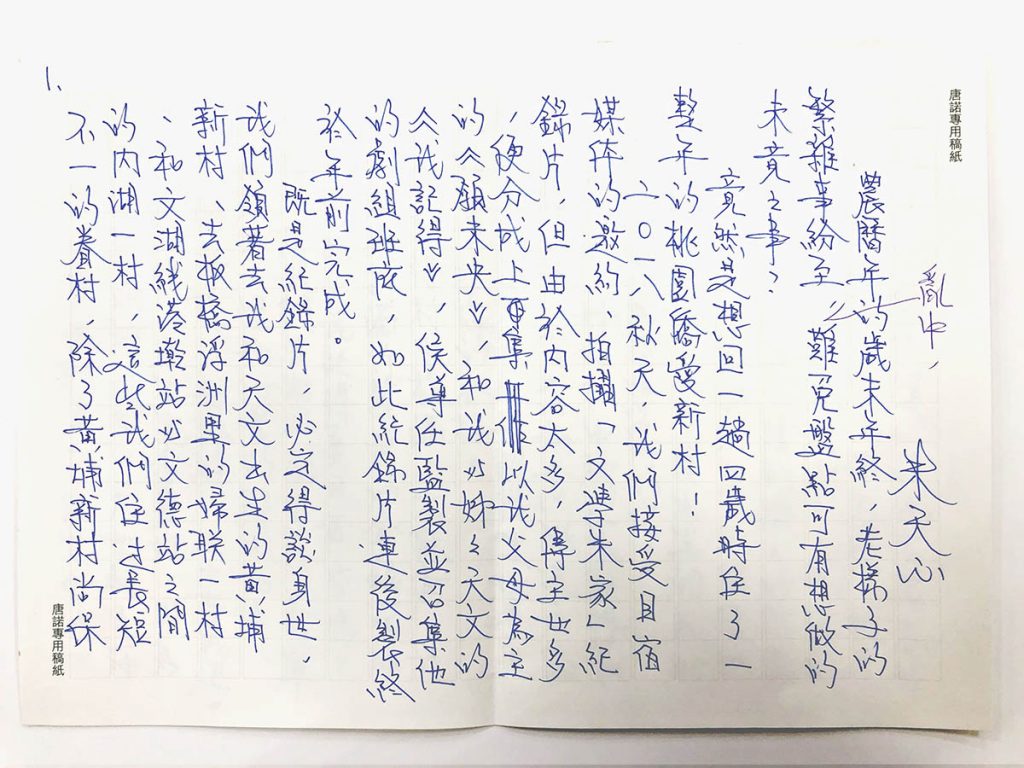 唐諾專用稿紙
1、
朱天心
亂中,
農曆年的歲末年終,老樣子的
繁雜事紛至,難免盤點可有想做的
未竟之事?
竟然是想回一趟四歲時住了一
整年的桃園僑愛新村!
二〇一八秋天,我們接受目宿
媒体的邀約、拍攝「文學朱家」紀
錄片,但由於內容太多,傳主也多
,便分成上下集以我父母為主
的《願未央》,和我与姊々天文的
《我記得》,侯導任監製並召集他
的劇組班底,如此紀錄片連後製終
於年前完成。
既是紀錄片,必定得談身世,
我們領著去我和天文出生的黃埔
新村、去板橋浮洲里的婦联一村
、和文湖綫港墘站与文德站之間
的內湖一村,這些我們住过長短
不一的眷村,除了黃埔新村尚保
唐諾專用稿紙